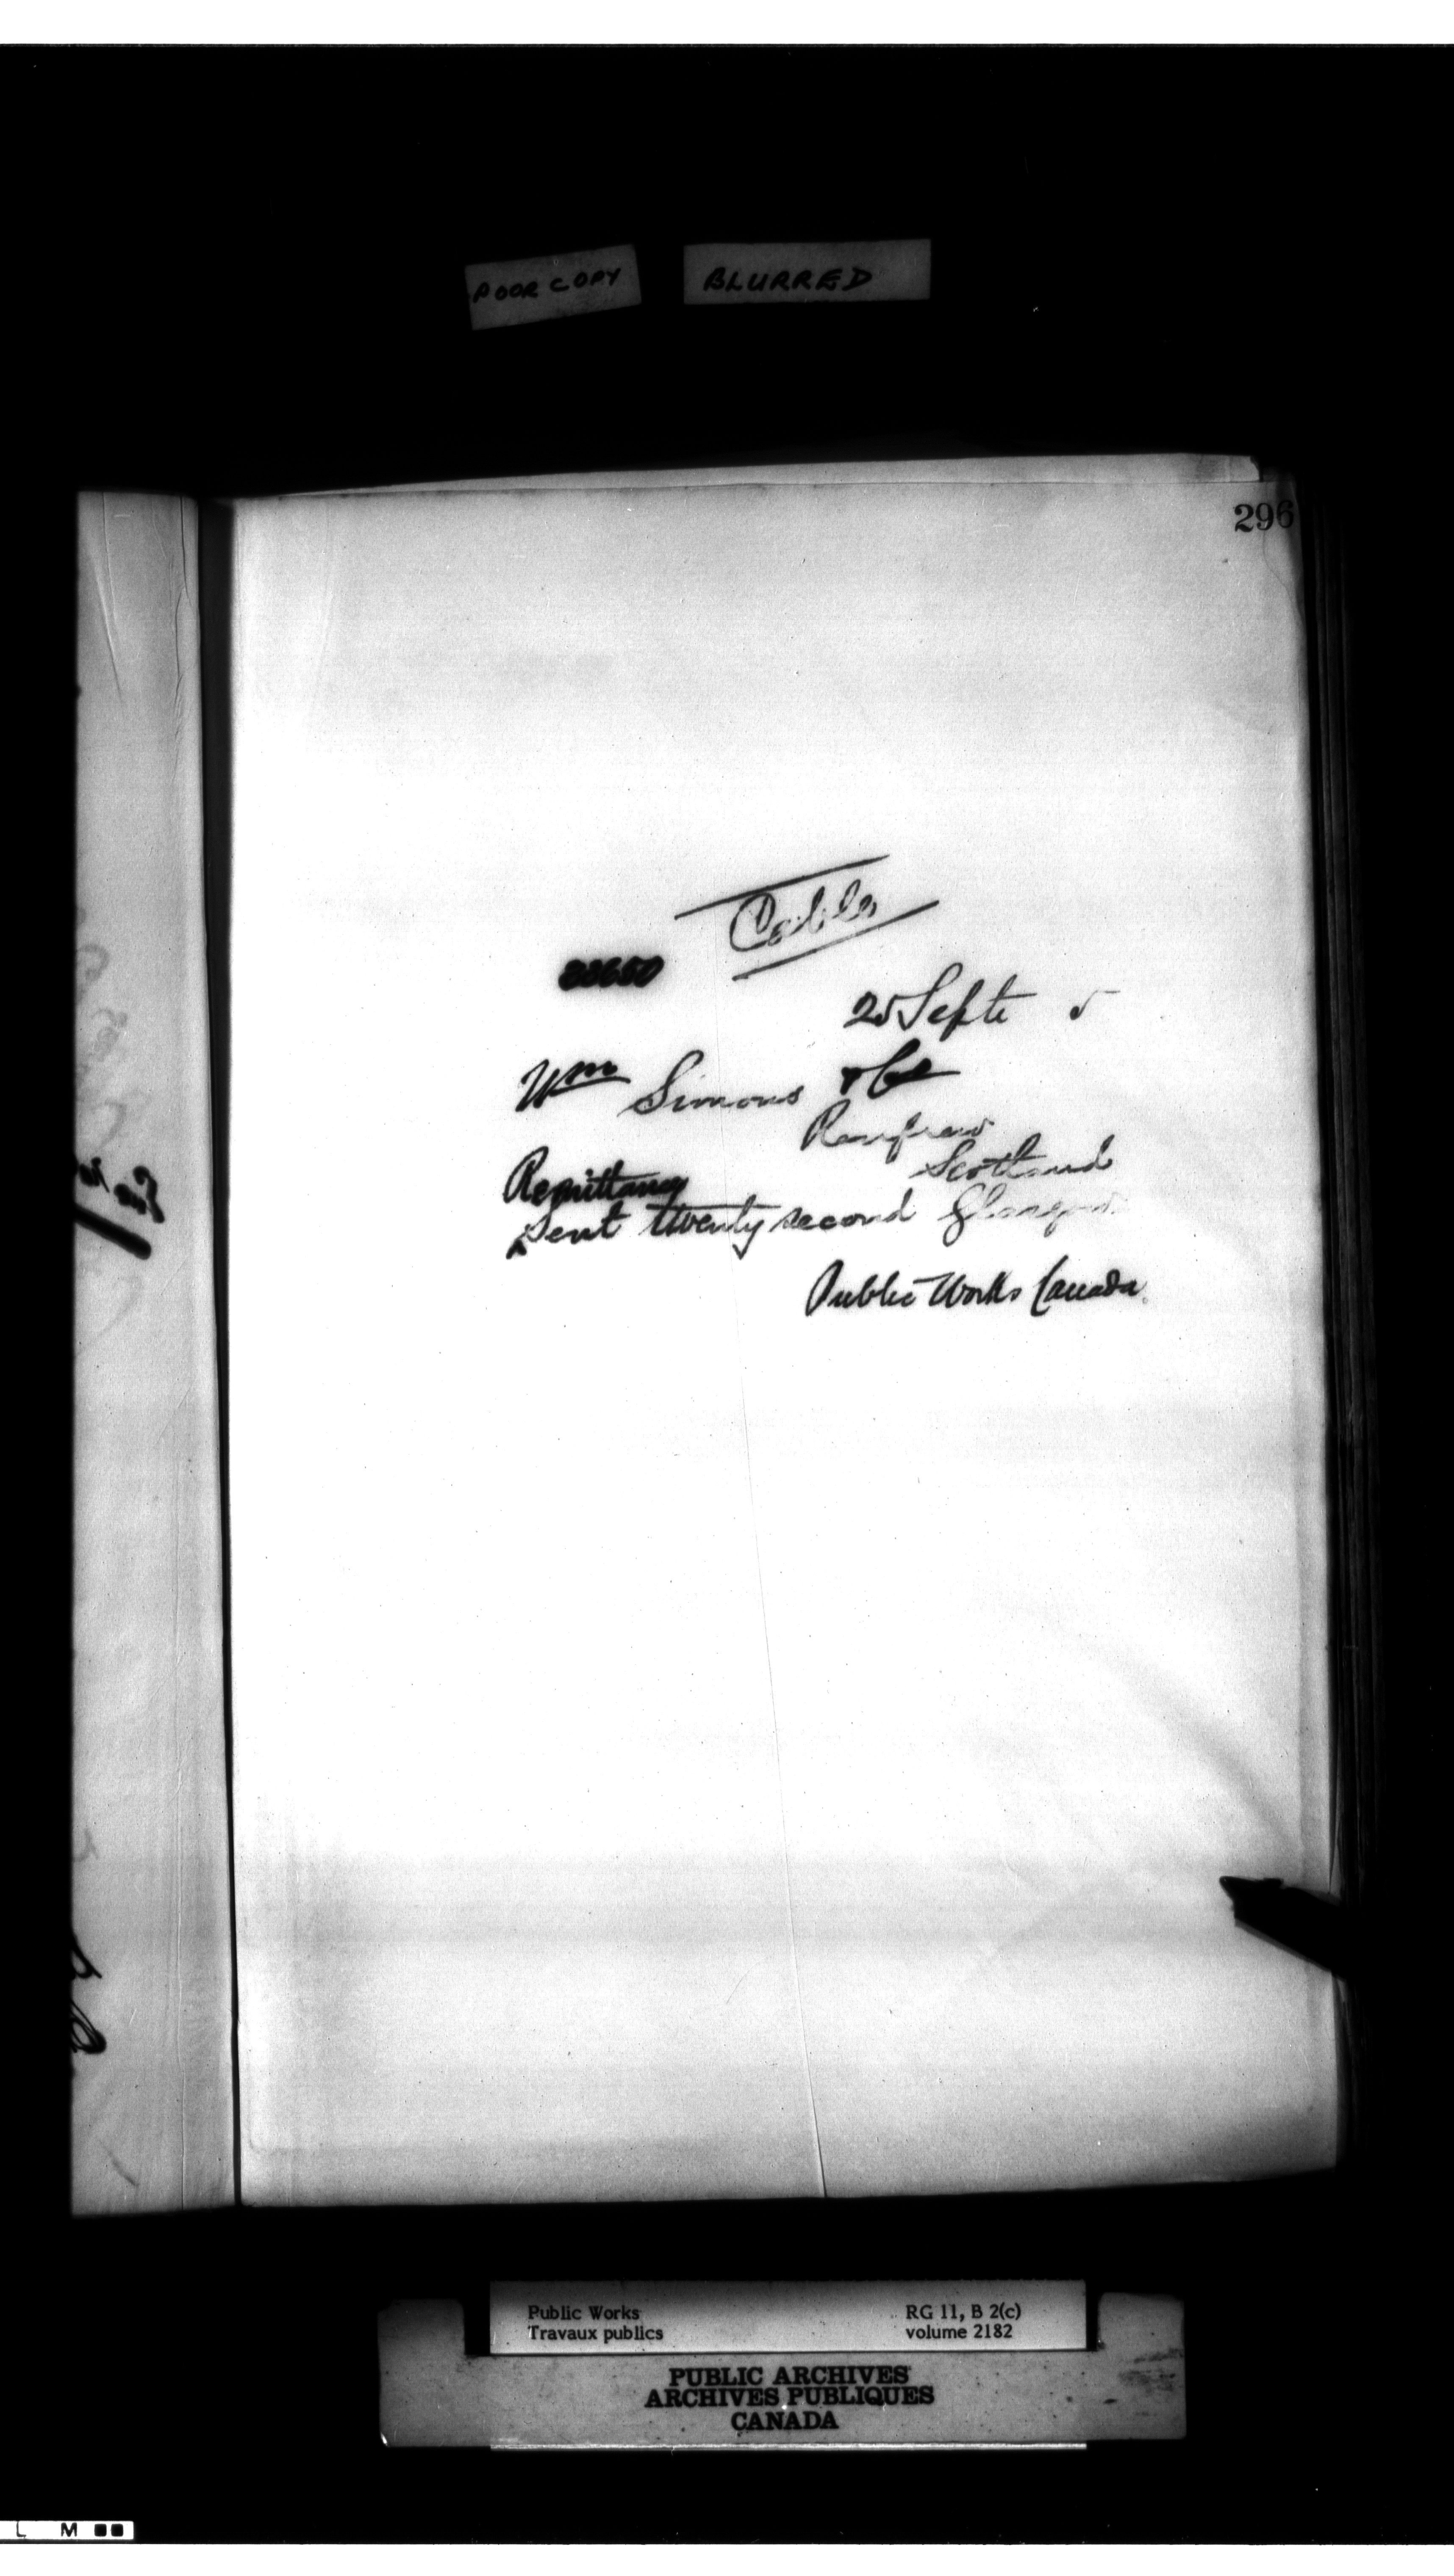 POOR COPY BLURRED
296
Cable
25 Septe 5
Wm Simons & Co
Renfrew
Scotland
Remittance
Sent twenty second Glasgow
Public Works Canada.
Public Works
Travaux publics
RG 11, B 2(c)
volume 2182
PUBLIC ARCHIVES
ARCHIVES PUBLIQUES
CANADA
L M